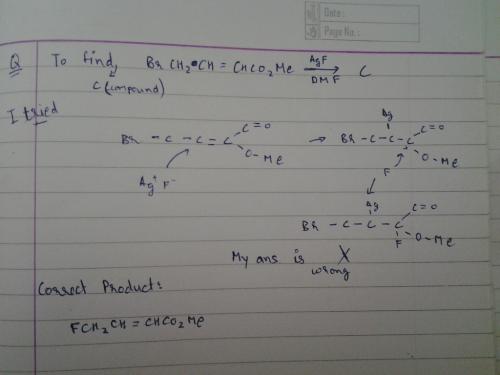 Date :
Page No. :
Q To find, BrCH2CH = CHCO2Me AgF DMF → C
C (compound)
I tried
Br - C - C = C C = O O - Me
Ag+ F-
→ Ag
Br - C - C - C C = O O - Me
F
Ag
Br - C - C - C C = O
F O - Me
My ans is X
wrong
Correct Product :
FCH2CH = CHCO2Me